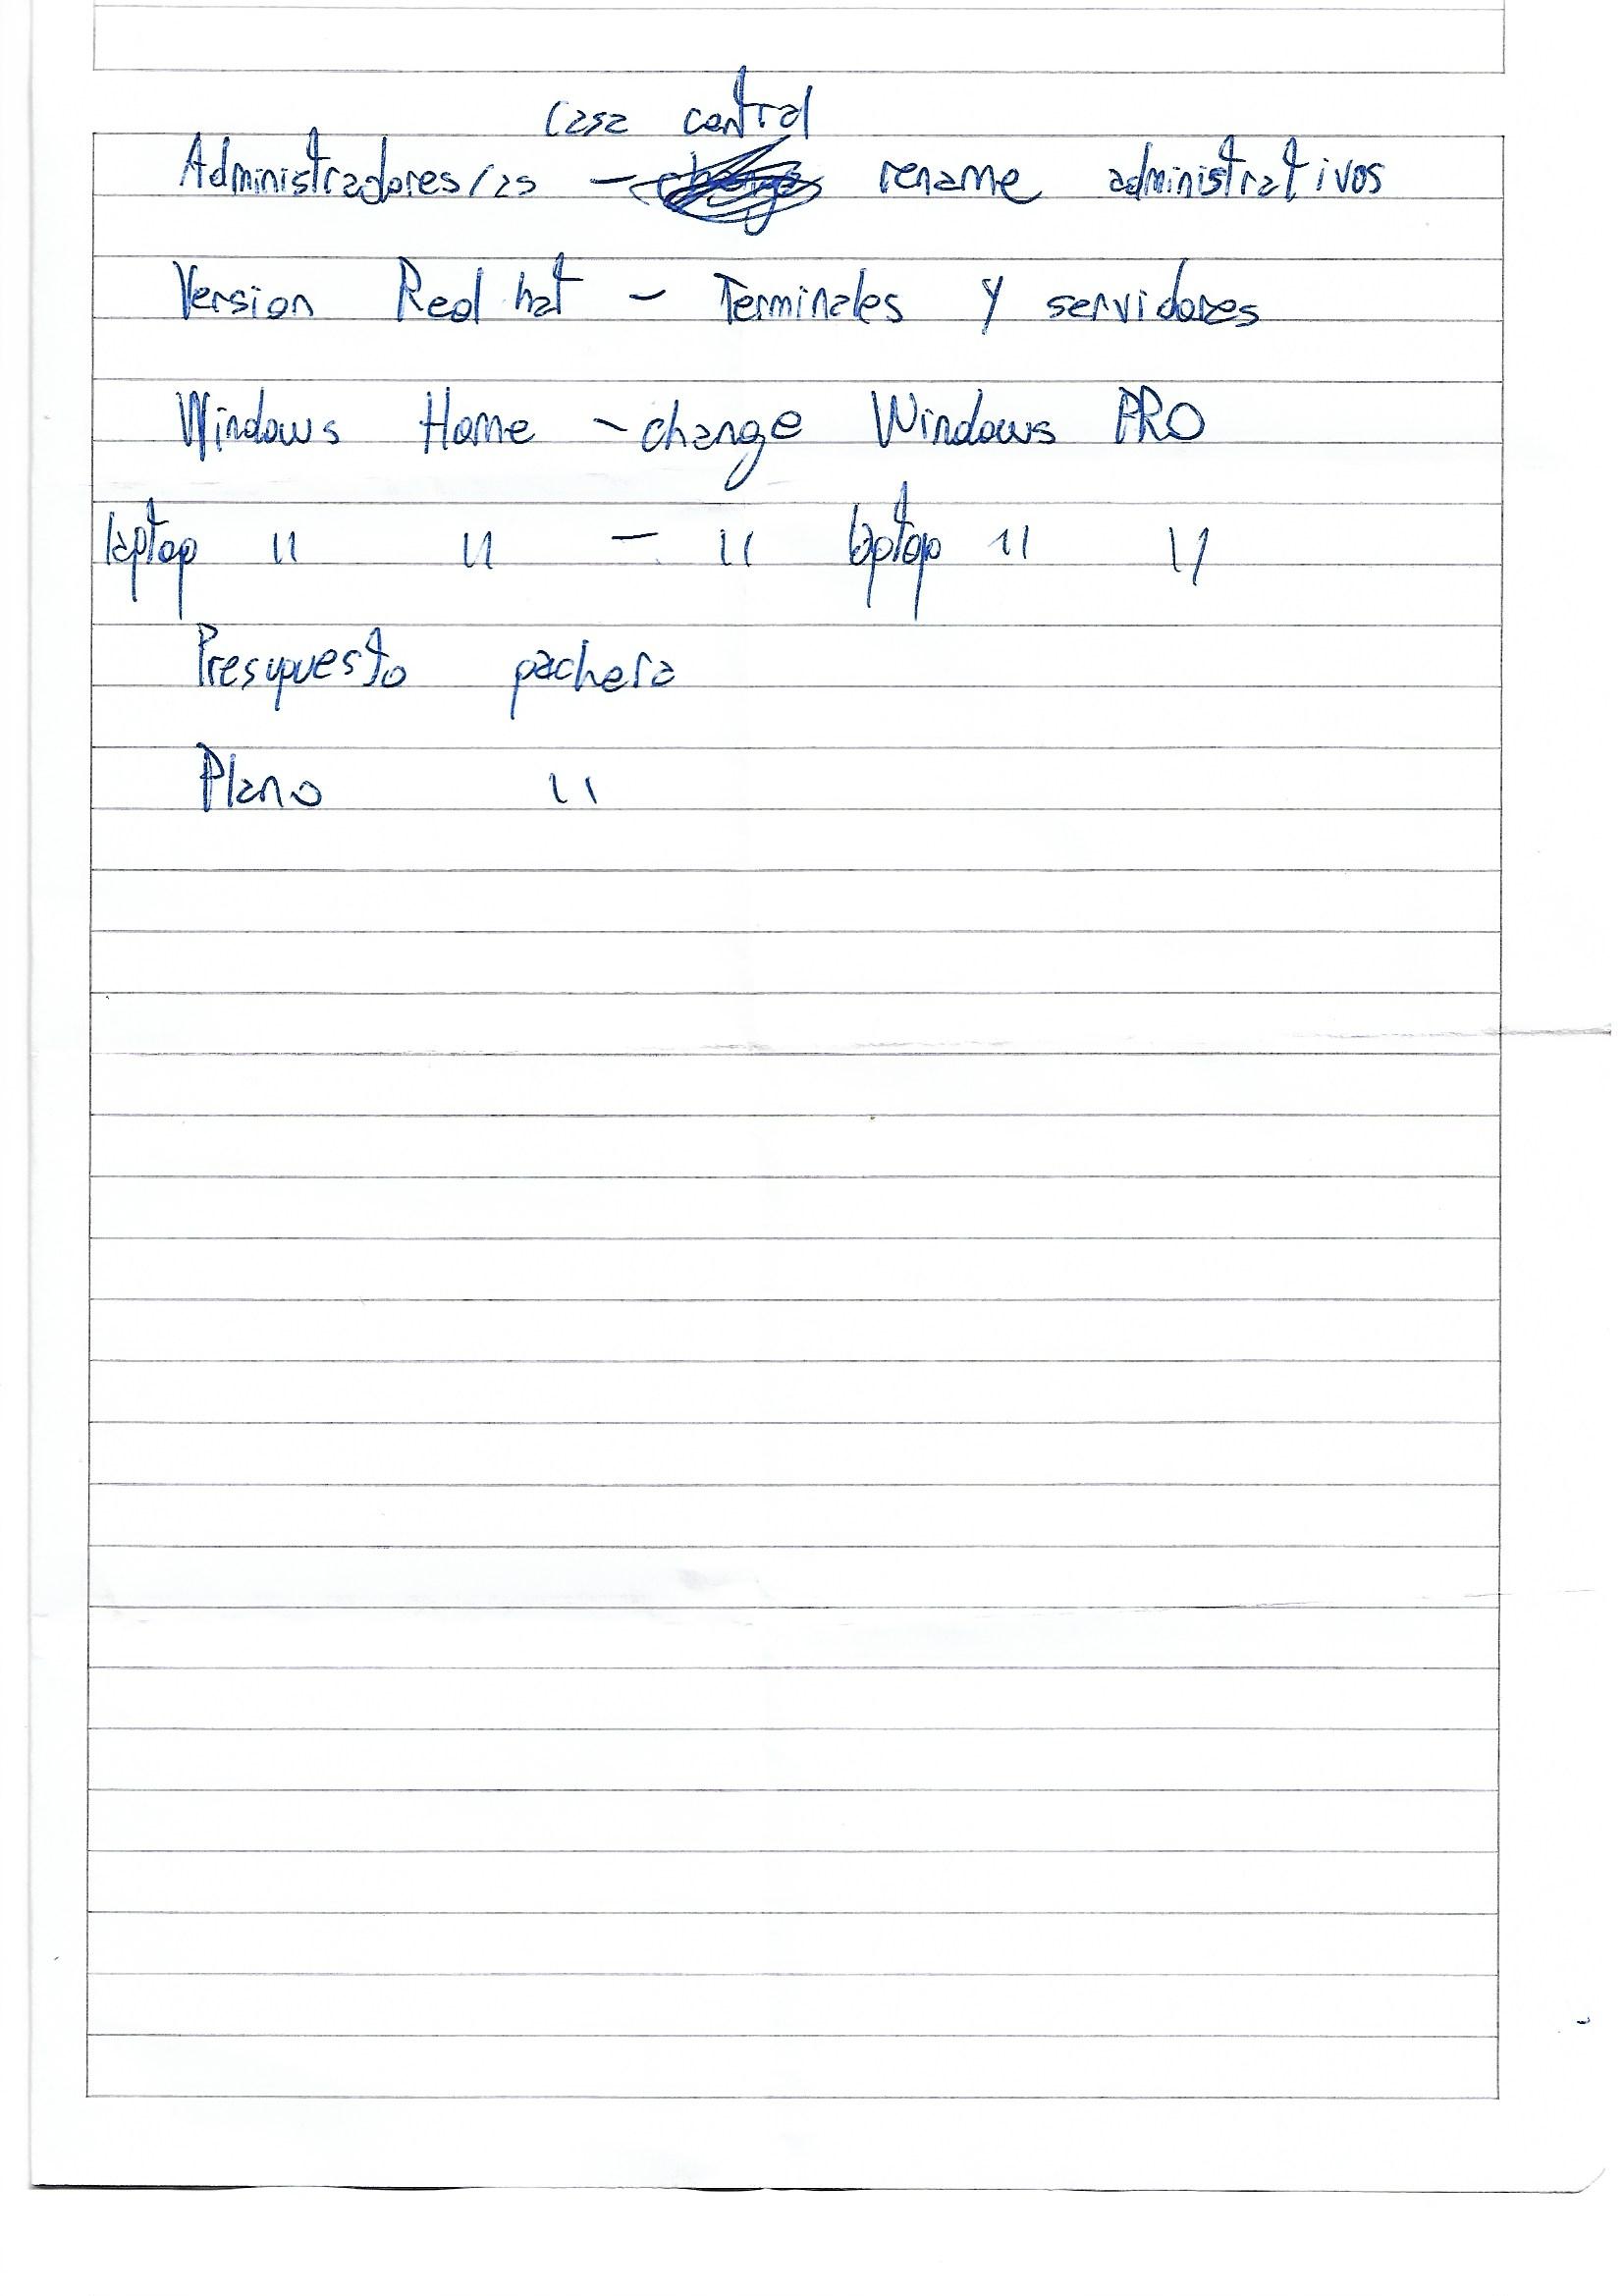 casa central
Administradores/as - rename administrativos
Version Red hat - Terminales y servidores
Windows Home - change Windows PRO
laptop " " - " laptop " "
Presupuesto pachera
Plano "